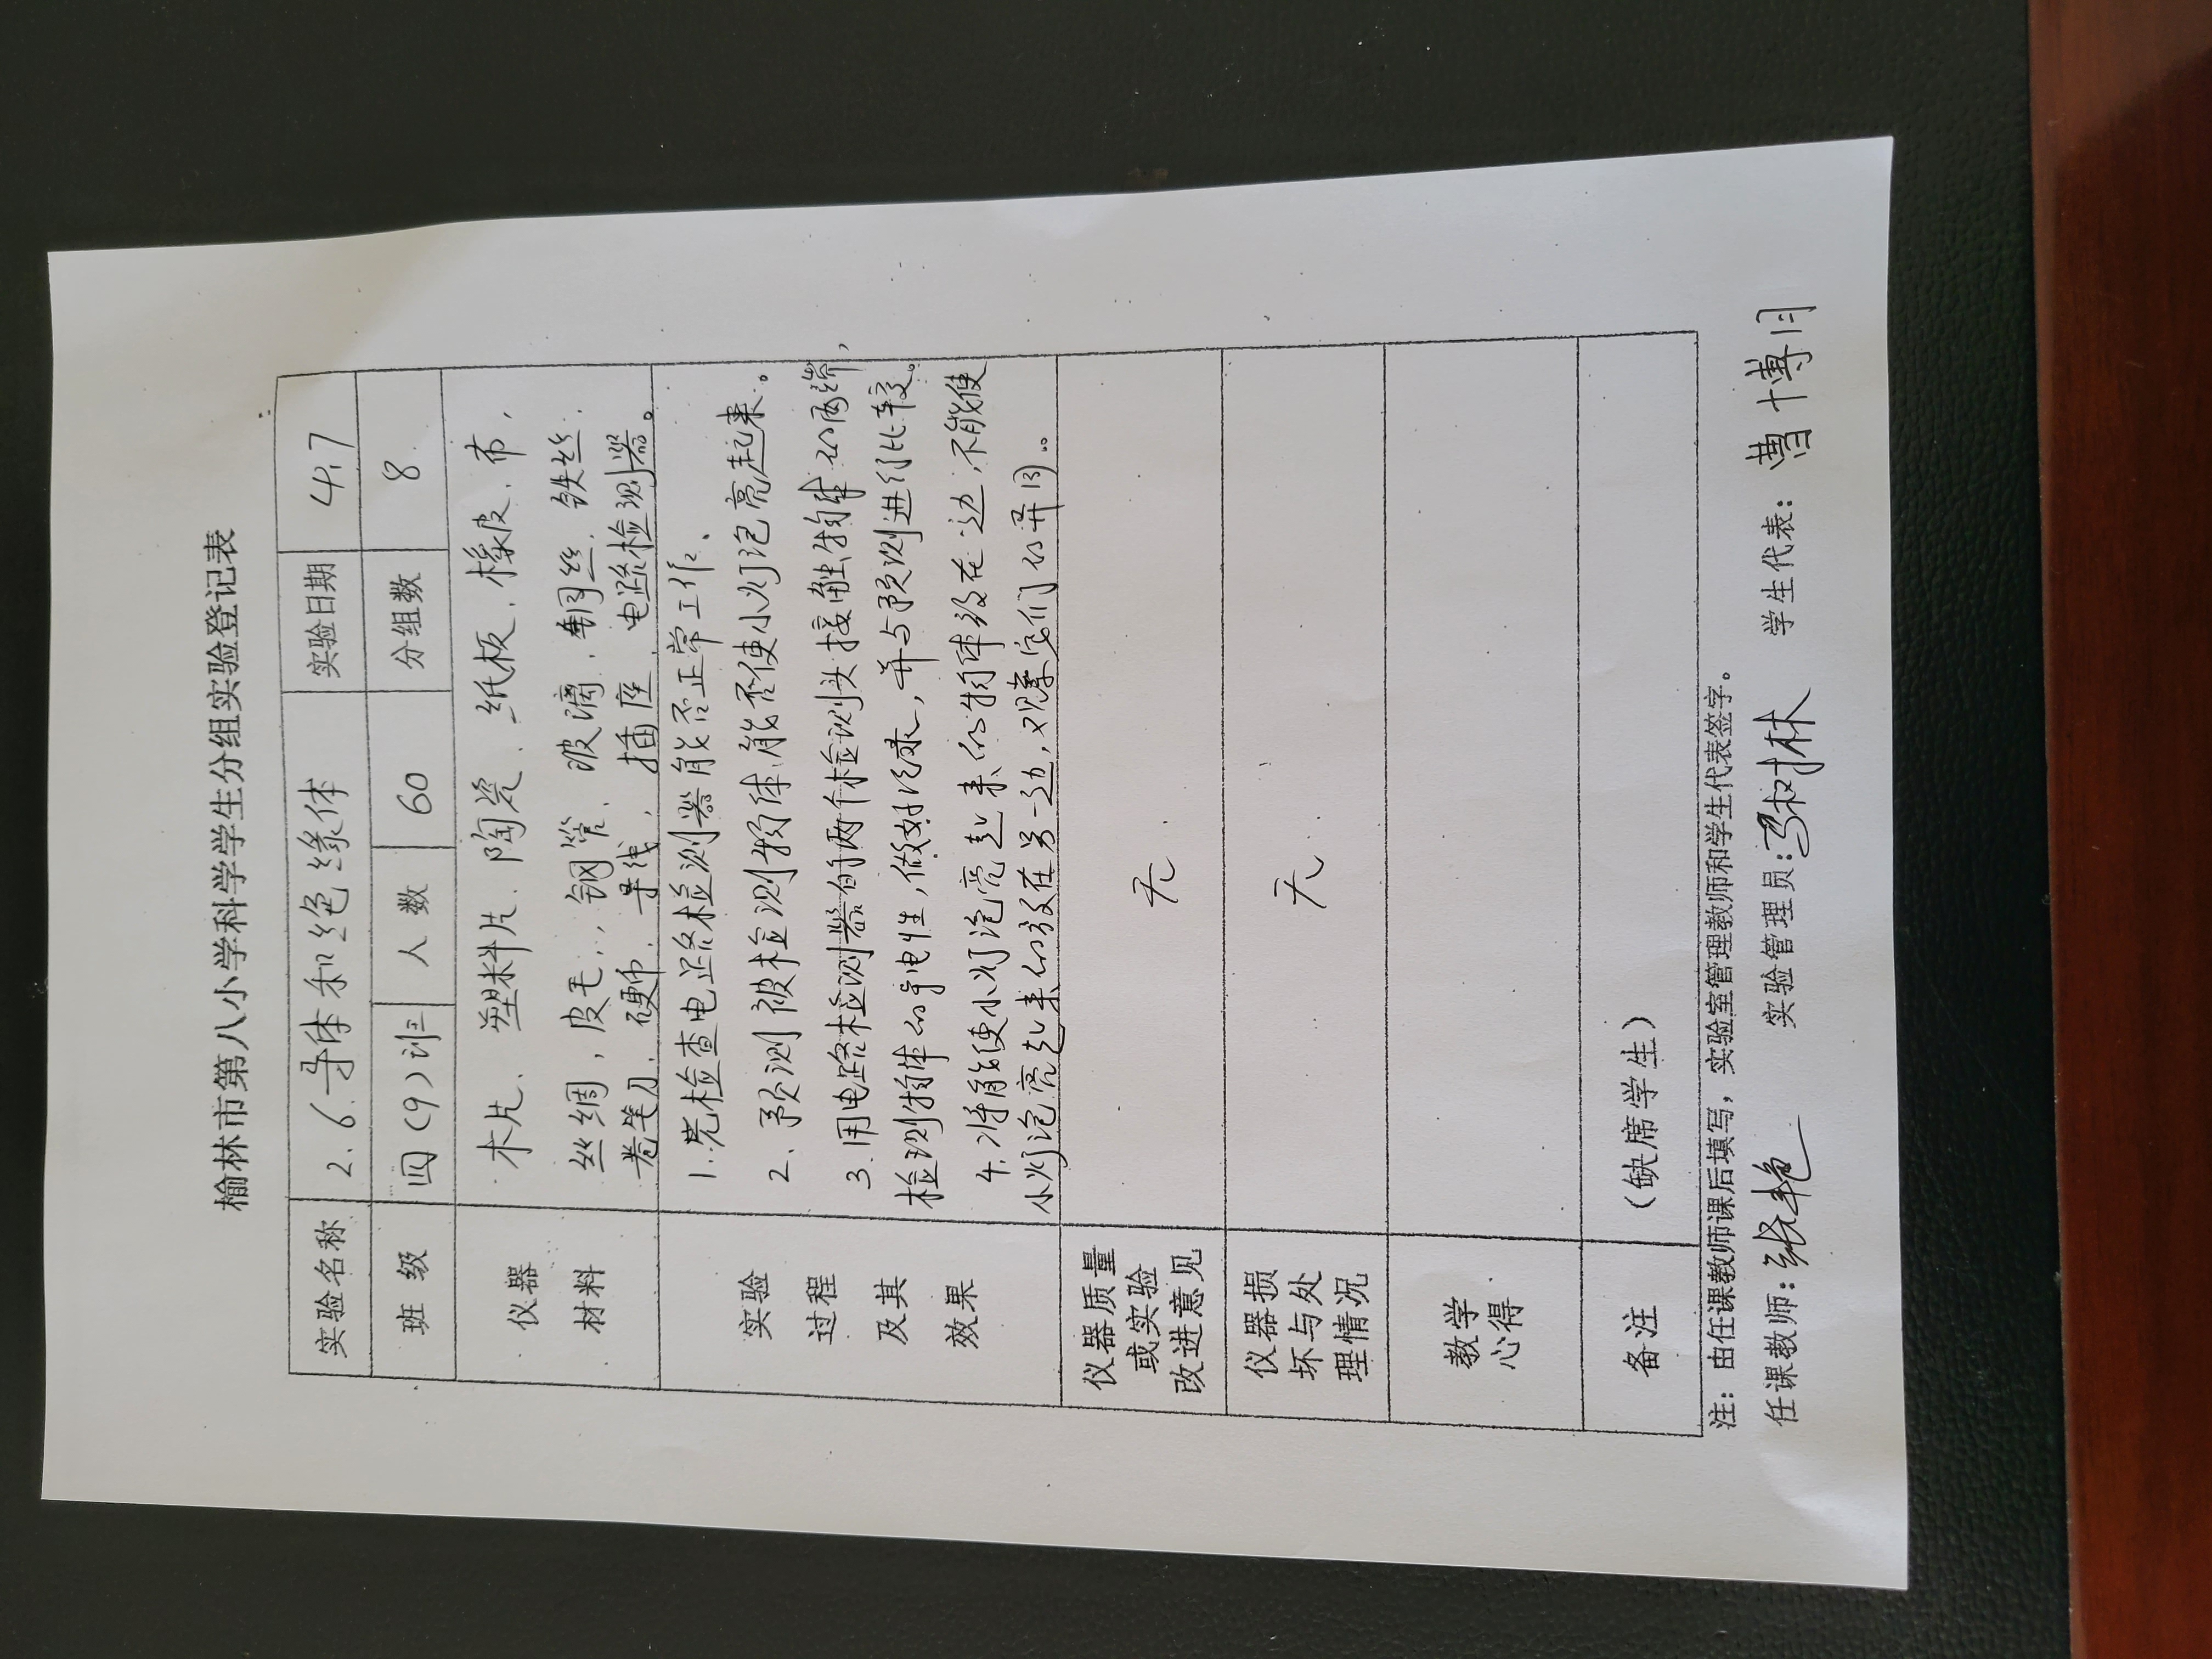 榆林市第八小学科学学生分组实验登记表
实验名称 2.6.导体和绝缘体 实验日期 4.7
班 级 四(9)班 人 数 60 分组数 8
仪器材料
木片、塑料片、陶瓷、纸板、橡皮、布、
丝绸、皮毛、钢管、玻璃、铜丝、铁丝、
卷笔刀、硬币、导线、插座 电路检测器。
实验过程及其效果
1.先检查电路检测器能否正常工作、
2、预测被检测物体能否使小灯泡亮起来。
3.用电路检测器的两个检测头接触物体的两端,
检测物体的导电性,做好记录,并与预测进行比较。
4.将能使小灯泡亮起来的物体放在一边,不能使
小灯泡亮起来的放在另一边,观察它们的异同。
仪器质量或实验改进意见 无
仪器损坏与处理情况 无
教学心得
备注 (缺席学生)
注:由任课教师课后填写,实验室管理教师和学生代表签字。
任课教师:张艳 实验管理员:马树林 学生代表:曹博月